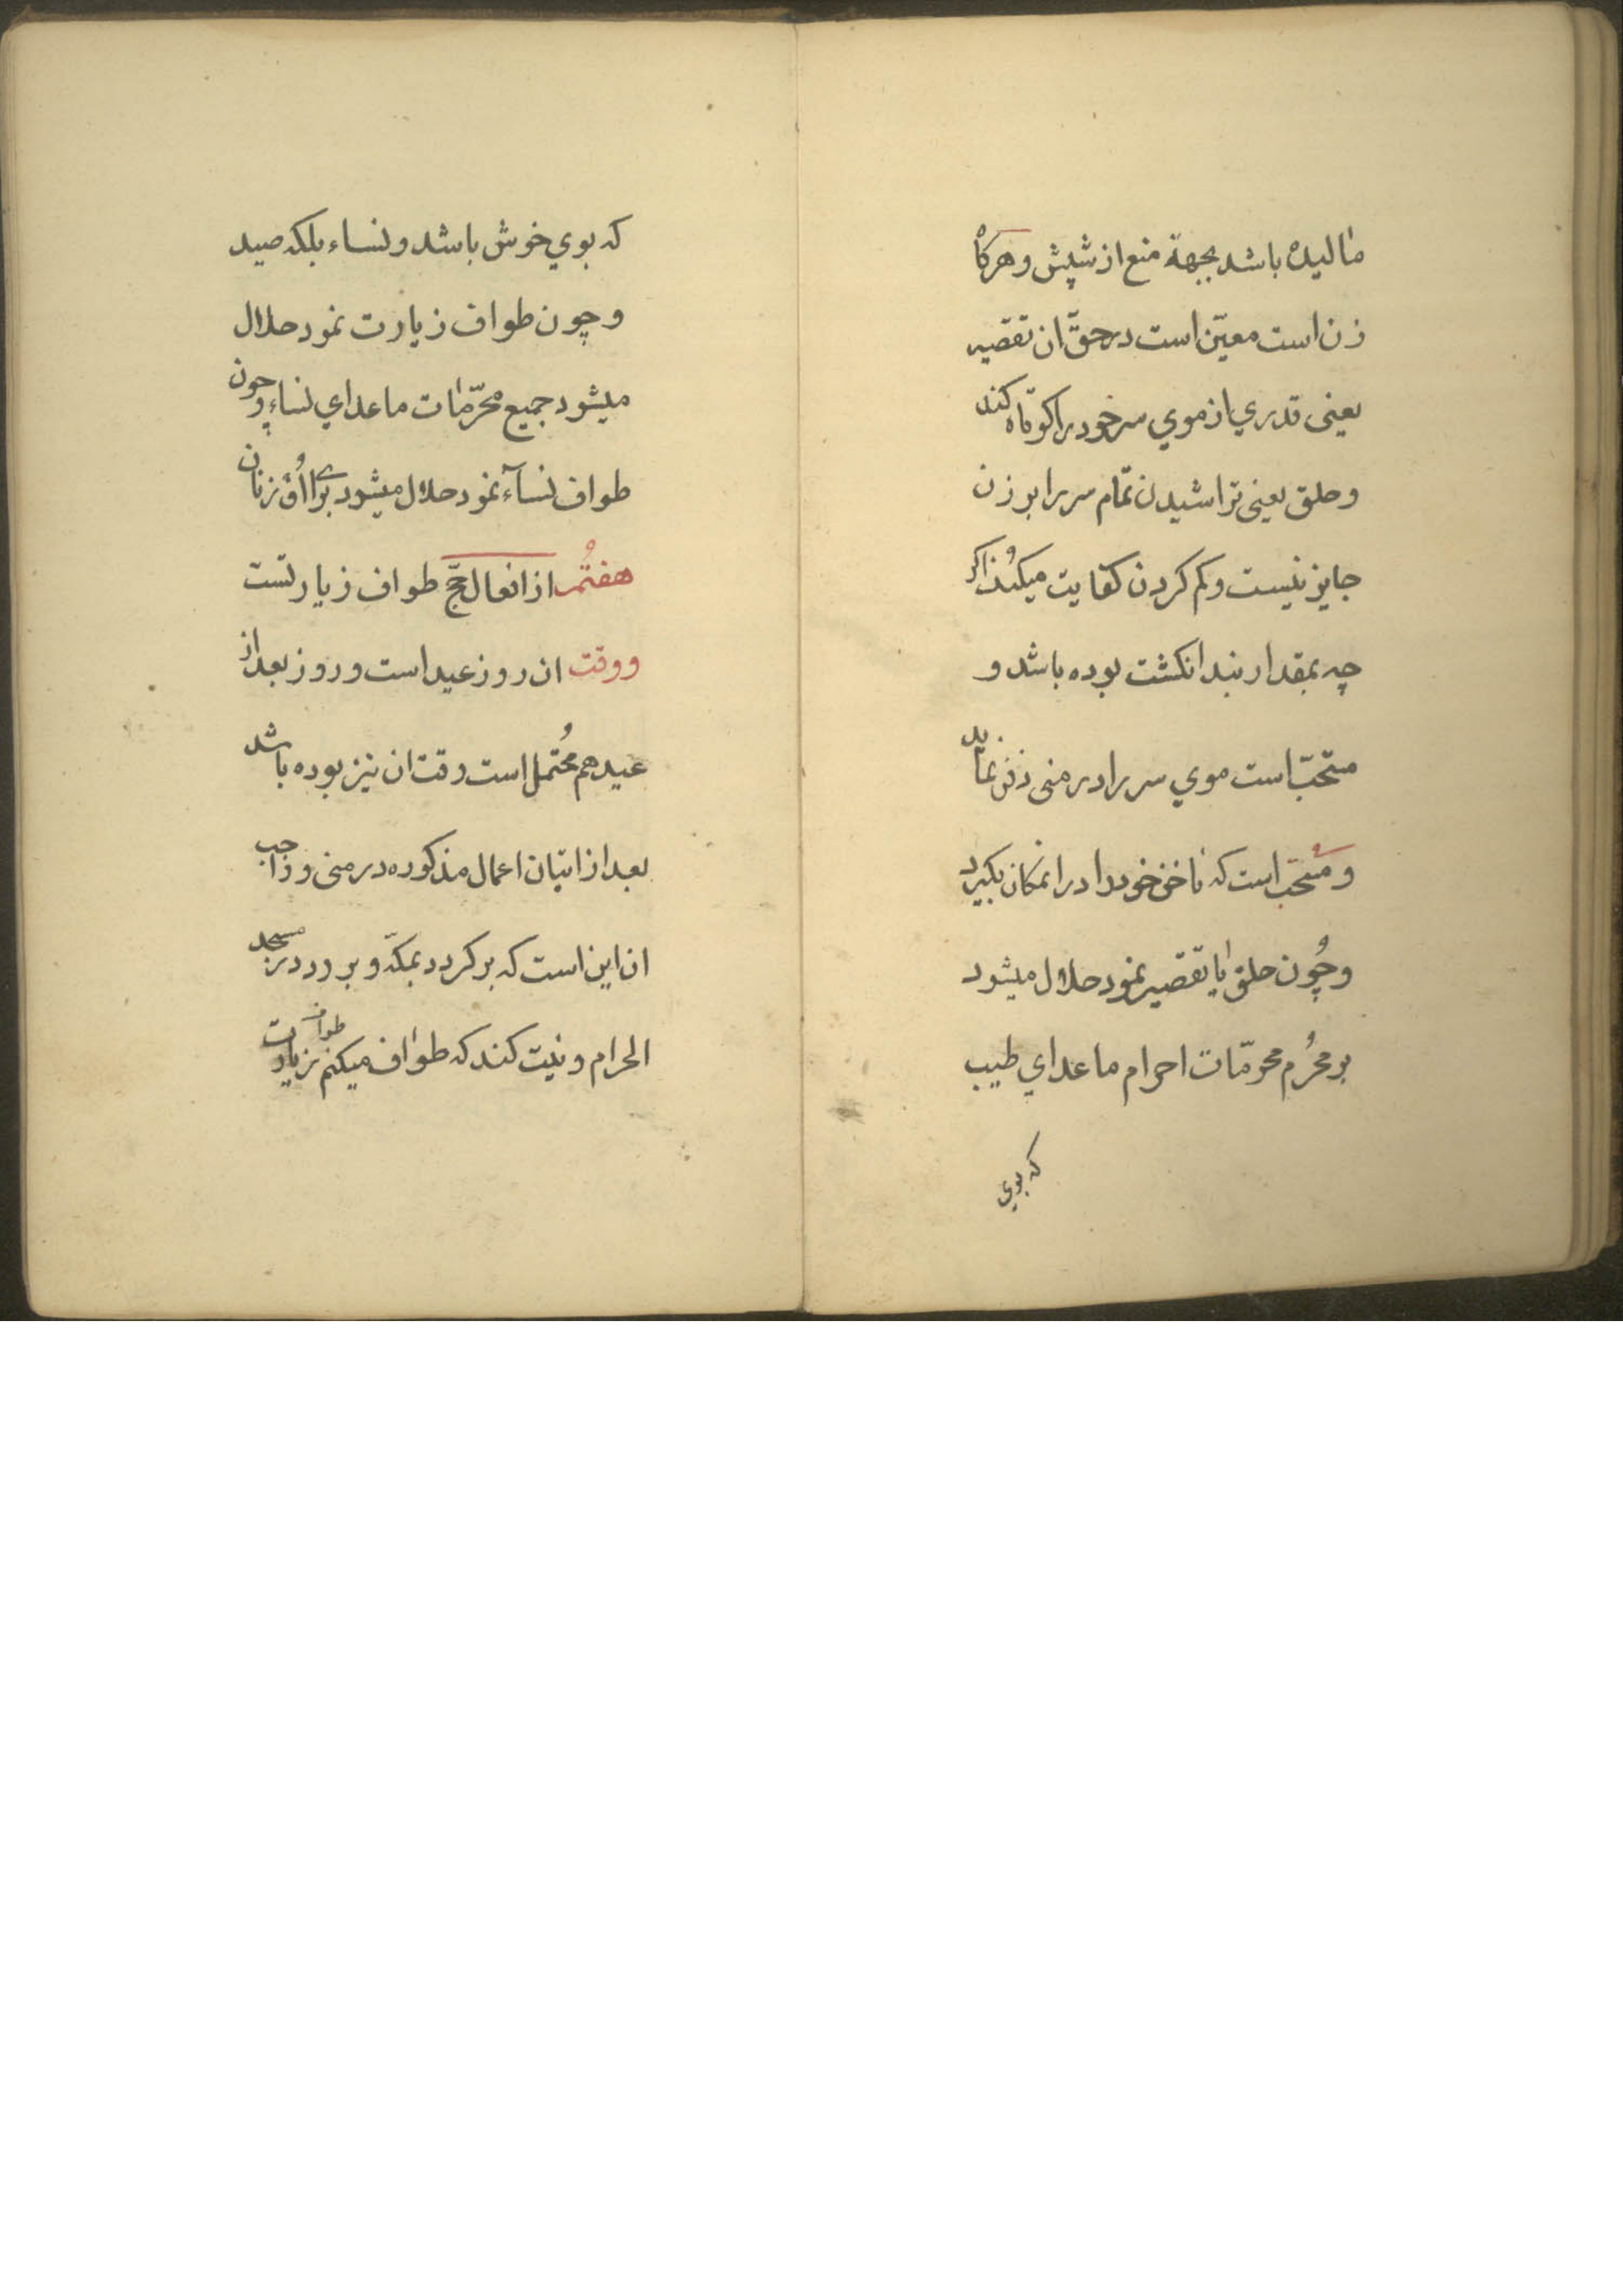 مالیده باشد بجهة منع از شپش و هرکاه
زن است معیّن است در حقّ ان تقصیر
یعنی قدري از موي سر خود را کوتاه کند
و حلق یعنی تراشیدن تمام سر را بر زن
جایز نیست و کم کردن کفایت میکند اکر
چه بمقدار بند انکشت بوده باشد و
مستحبّ است موي سر را در منی دفن نماید
و مستحبّ است که ناخن خود را در انمکان بکیرد
و چُون حلق یا تقصیر نمود حلال میشود
بر محرُم محرمّات احرام ما عداي طیب
که بوي
که بوي خوش باشد و نساء بلکه صید
و چون طواف زیارت نمود حلال
میشود جمیع محرّمات ما عداي نساء و چون
طواف نسآء نمود حلال میشود براي اؤ زنان
هفتُم از افعال حجّ طواف زیارتست
و وقت ان روز عید است و روز بعد از
عید هم مُحتمل است وقت ان نیز بوده باشد
بعد از اتیان اعمال مذکوره در منی و واجب
ان این است که بر کردد بمکّه و برود در مسجد
الحرام و نیّت کند که طواف میکنم طواف زیارت